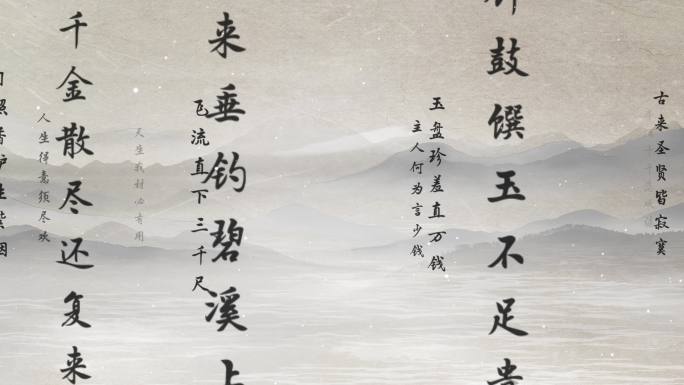 古来圣贤皆寂寞
鼓馔玉不足贵
玉盘珍羞直万钱
主人何为言少钱
来垂钓碧溪上
飞流直下三千尺
天生我材必有用
千金散尽还复来
人生得意须尽欢
照香炉生紫